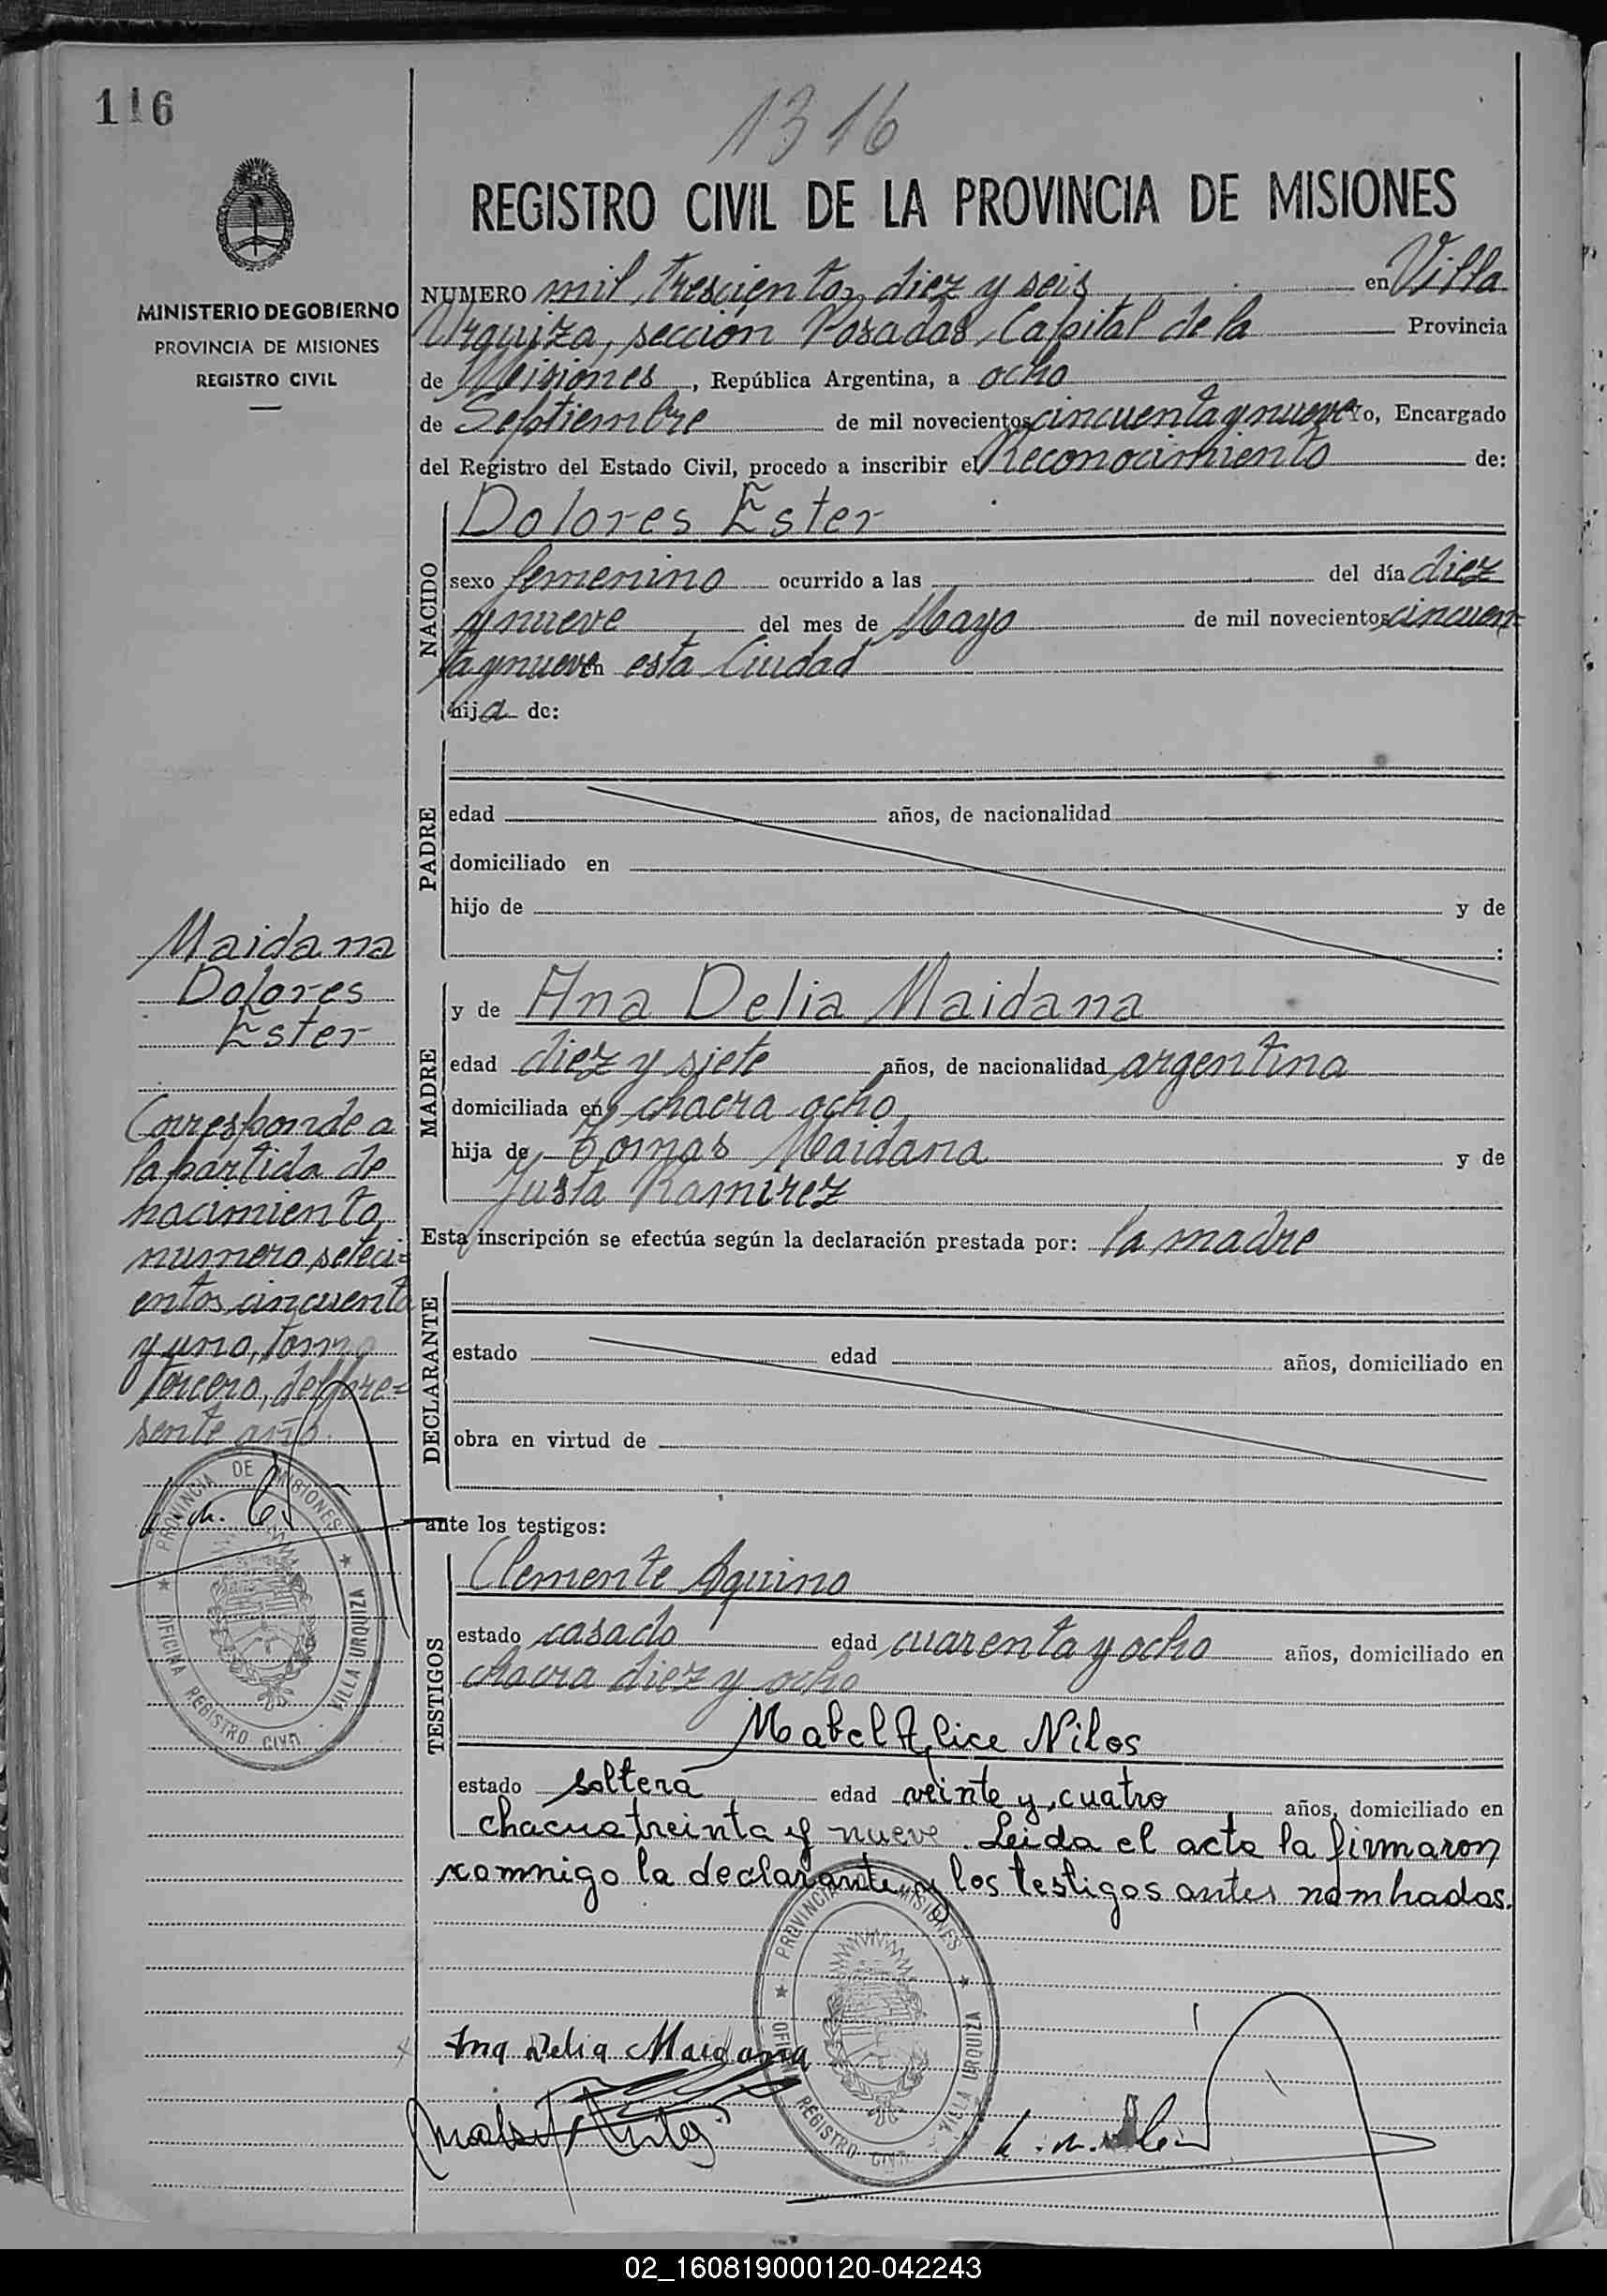 116
1316
REGISTRO CIVIL DE LA PROVINCIA DE MISIONES
MINISTERIO DE GOBIERNO
PROVINCIA DE MISIONES
REGISTRO CIVIL
NUMERO mil, trescientos, diez y seis en Villa
Urquiza, sección Posadas, Capital de la Provincia
de Misiones, República Argentina, a ocho
de Septiembre de mil novecientos cincuenta y nueve yo, Encargado
del Registro del Estado Civil, procedo a inscribir el Reconocimiento de:
NACIDO
Dolores Ester
sexo femenino ocurrido a las del día diez
y nueve del mes de Mayo de mil novecientos cincuen=
ta y nueve en esta Ciudad
hija de:
PADRE
edad años, de nacionalidad
domiciliado en
hijo de y de
:
MADRE
y de Ana Delia Maidana
edad diez y siete años, de nacionalidad argentina
domiciliada en chacra ocho,
hija de Tomas Maidana y de
Justa Ramirez
Esta inscripción se efectúa según la declaración prestada por: la madre
DECLARANTE
estado edad años, domiciliado en
obra en virtud de
ante los testigos:
TESTIGOS
Clemente Aquino
estado casado edad cuarenta y ocho años, domiciliado en
chacra diez y ocho
Mabel Alice Nilos
estado soltera edad veinte y cuatro años, domiciliado en
chacra treinta y nueve. Leida el acta la firmaron
conmigo la declarante y los testigos antes nombrados.
Maidana
Dolores
Ester
Corresponde a
la partida de
nacimiento
numero seteci=
entos cincuenta
y uno, tomo
tercero, del pre=
sente año.
PROVINCIA DE MISIONES
OFICINA REGISTRO CIVIL
VILLA URQUIZA
PROVINCIA MISIONES
OFICINA REGISTRO CIVIL
VILLA URQUIZA
Ana Delia Maidana
02_160819000120-042243